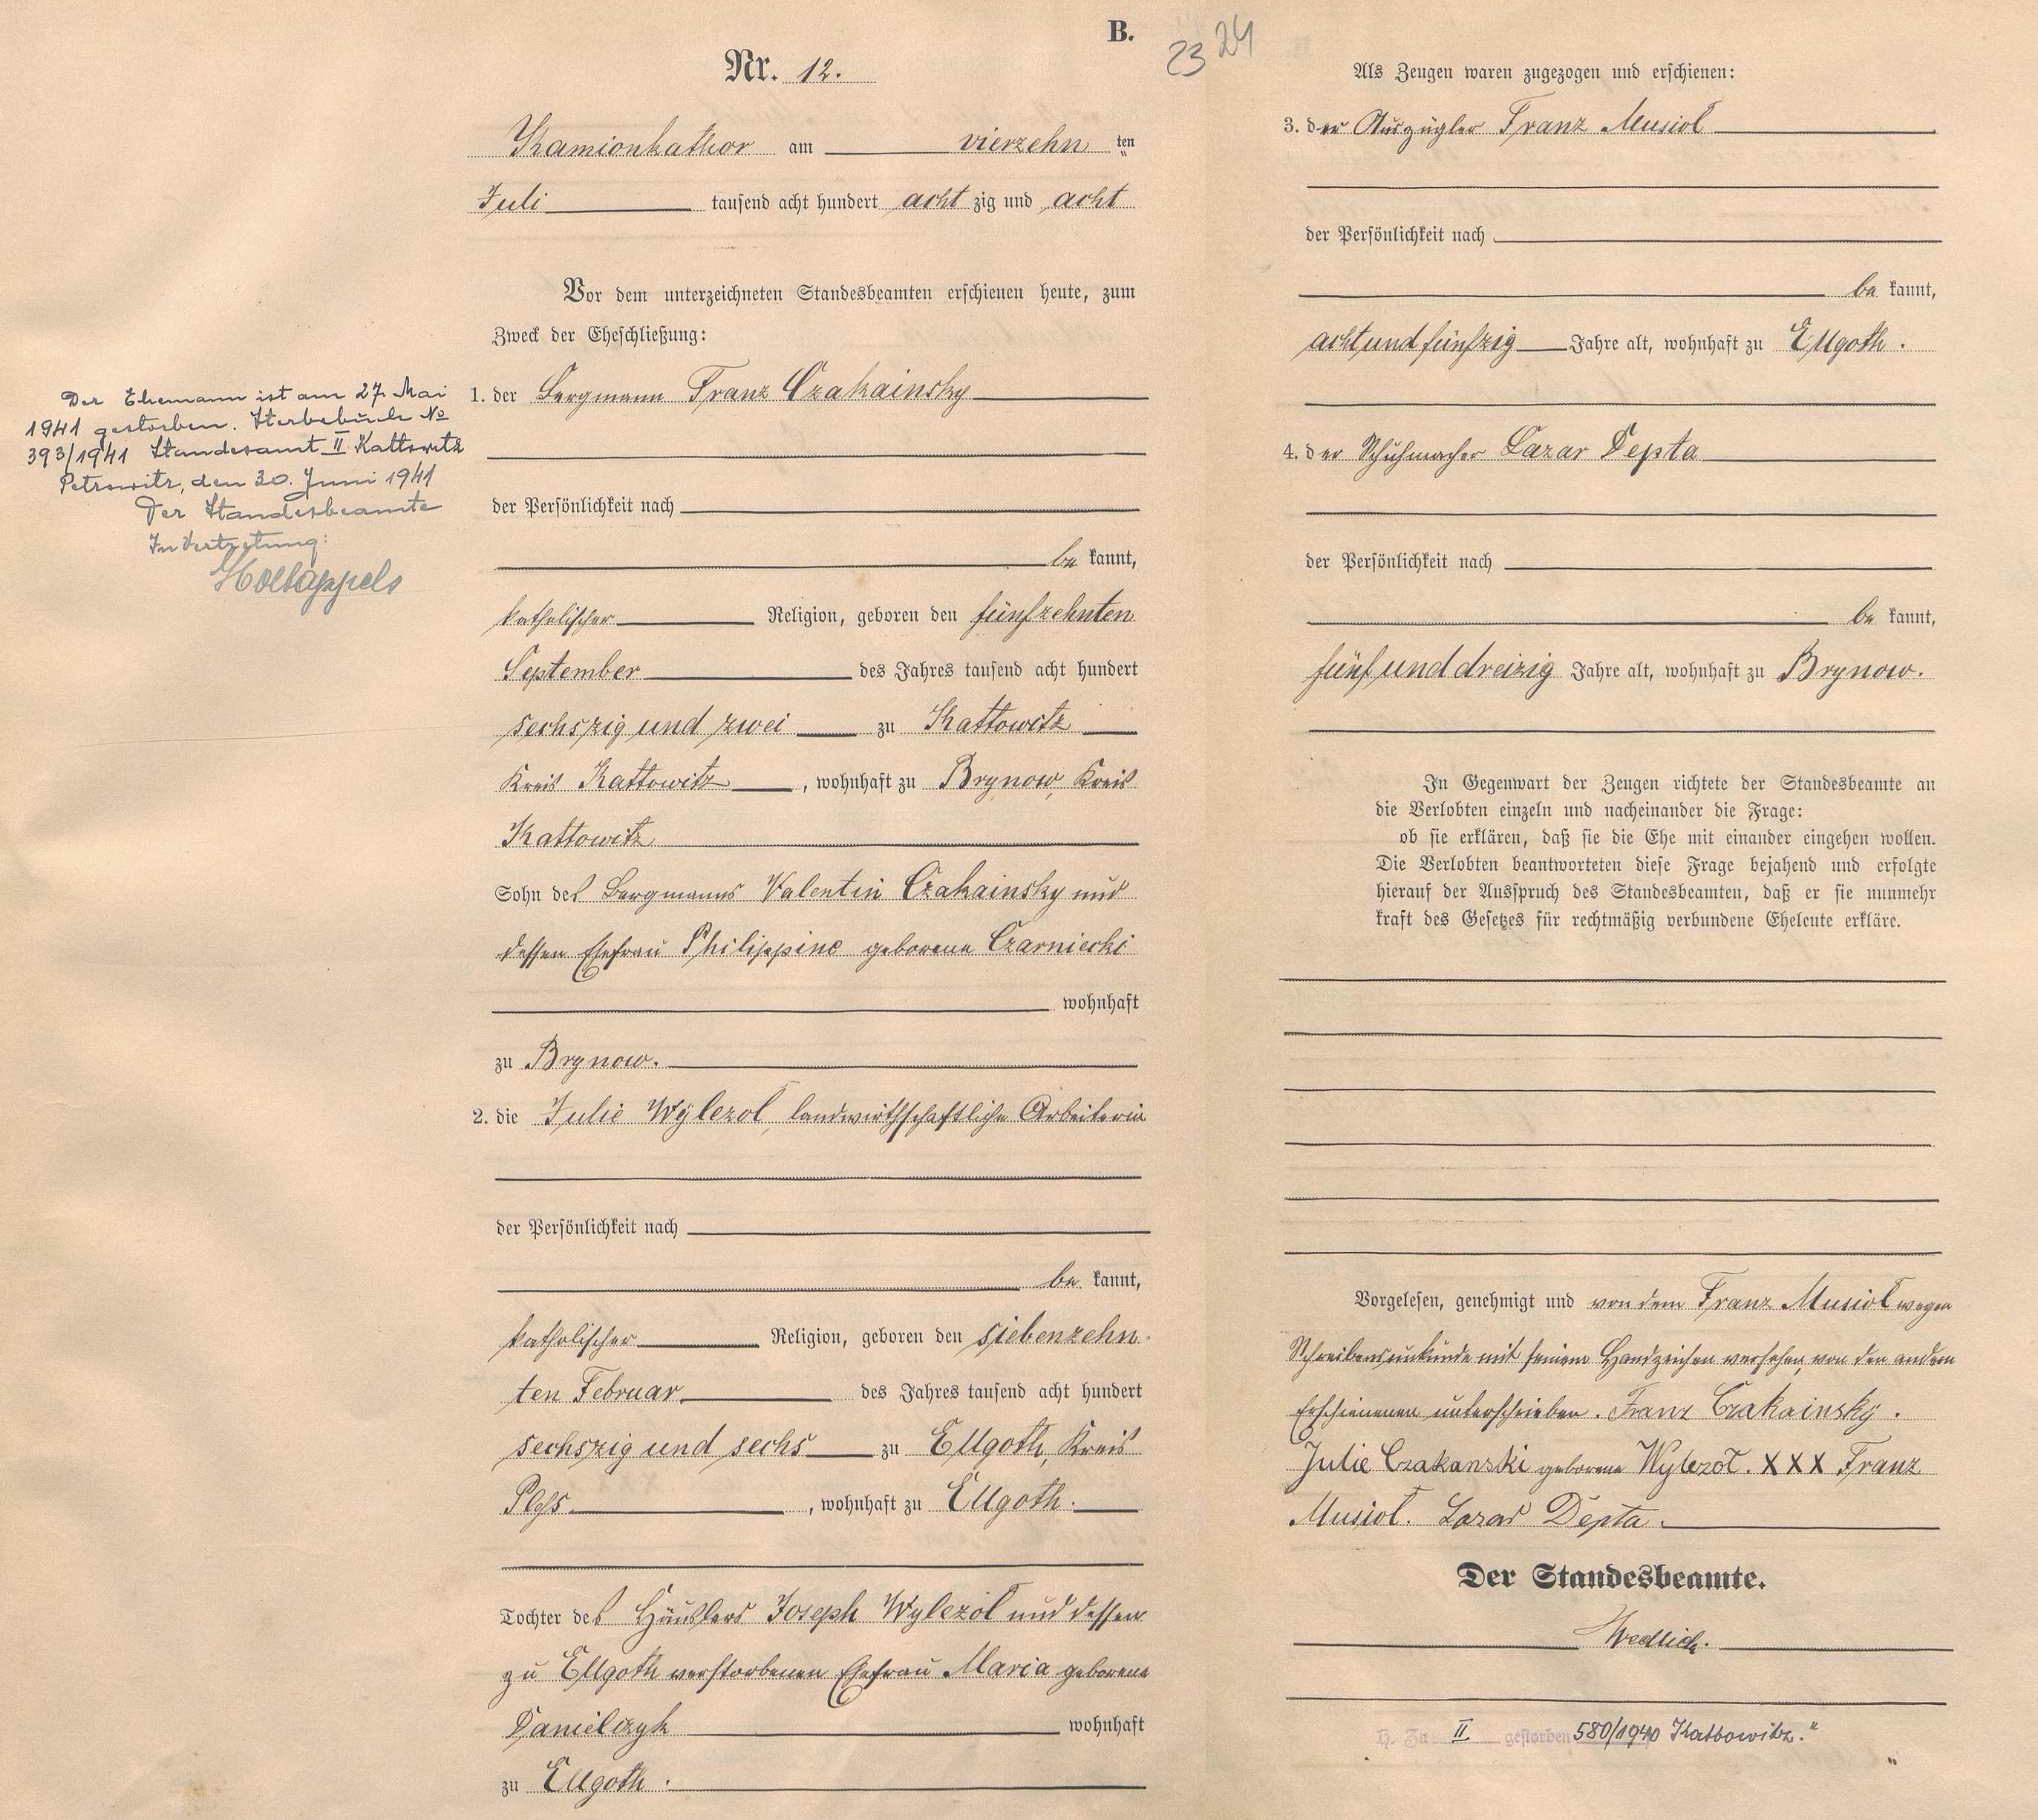 B.
23 24
Nr. 12.
Kamionkathor am vierzehn ten
Juli tausend acht hundert acht zig und acht
Vor dem unterzeichneten Standesbeamten erschienen heute, zum
Zweck der Eheschließung:
1. der Bergmann Franz Czakainsky
der Persönlichkeit nach
be kannt,
katholischer Religion, geboren den fünfzehnten
September des Jahres tausend acht hundert
sechszig und zwei zu Kattowitz
Kreis Kattowitz, wohnhaft zu Brynow, Kreis
Kattowitz
Sohn des Bergmanns Valentin Czakainsky und
dessen Ehefrau Philippine geborene Czarniecki
wohnhaft
zu Brynow.
2. die Julie Wylezol, landwirthschaftliche Arbeiterin
der Persönlichkeit nach
be kannt,
katholischer Religion, geboren den siebenzehn-
ten Februar des Jahres tausend acht hundert
sechszig und sechs zu Ellgoth, Kreis
Pleß, wohnhaft zu Ellgoth.
Tochter des Häuslers Joseph Wylezol und dessen
zu Ellgoth verstorbenen Ehefrau Maria geborene
Danielczyk wohnhaft
zu Ellgoth.
Der Ehemann ist am 27. Mai
1941 gestorben. Sterbebuch No
393/1941 Standesamt II Kattowitz
Petrowitz, den 30. Juni 1941
Der Standesbeamte
In Vertretung:
Holtappels
Als Zeugen waren zugezogen und erschienen:
3. der Auszügler Franz Musiol
der Persönlichkeit nach
be kannt,
acht und fünfzig Jahre alt, wohnhaft zu Ellgoth.
4. der Schuhmacher Lazar Depta
der Persönlichkeit nach
be kannt,
fünf und dreizig Jahre alt, wohnhaft zu Brynow.
In Gegenwart der Zeugen richtete der Standesbeamte an
die Verlobten einzeln und nacheinander die Frage:
ob sie erklären, daß sie die Ehe mit einander eingehen wollen.
Die Verlobten beantworteten diese Frage bejahend und erfolgte
hierauf der Ausspruch des Standesbeamten, daß er sie nunmehr
kraft des Gesetzes für rechtmäßig verbundene Eheleute erkläre.
Vorgelesen, genehmigt und von dem Franz Musiol wegen
Schreibensunkunde mit seinem Handzeichen versehen, von den andern
Erschienenen unterschrieben. Franz Czakainsky.
Julie Czakanski geborene Wylezol. XXX Franz
Musiol. Lazar Depta.
Der Standesbeamte.
Wedlich.
H. Zu II gestorben 580/1940 Kattowitz."